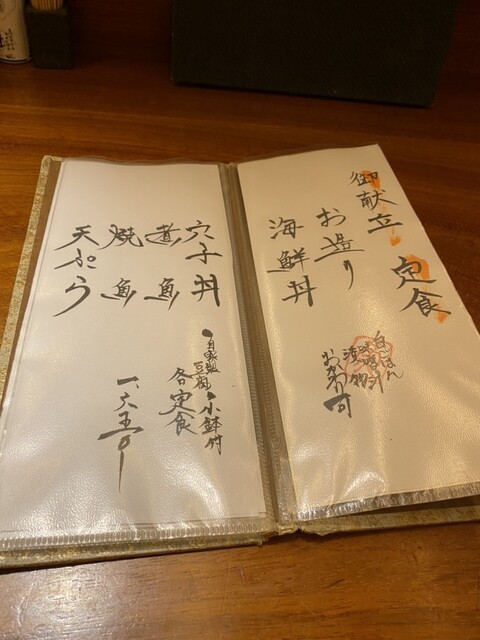 御献立
定食
お造り
海鮮丼
白ごはん
味噌汁
漬物
おかわり可
穴子丼
煮魚
焼魚
天ぷら
自家製豆腐
小鉢付
各定食
一、六五〇